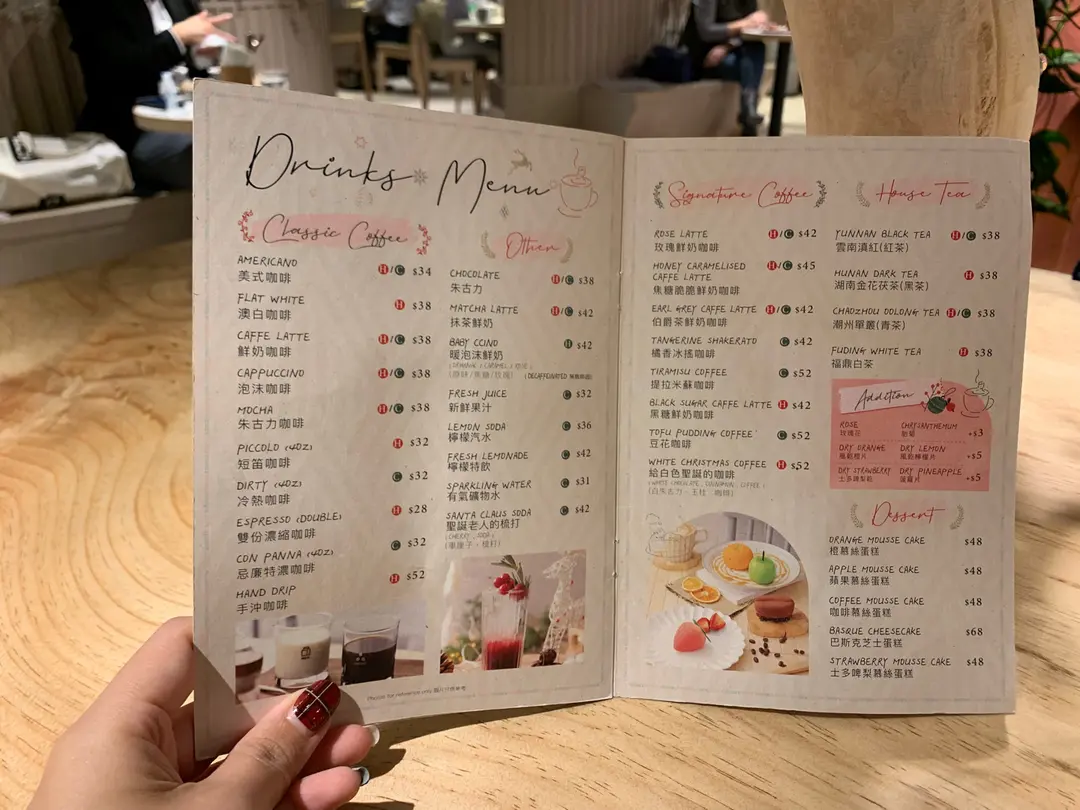 Drinks Menu
Classic Coffee
AMERICANO H/C $34
美式咖啡
FLAT WHITE H $38
澳白咖啡
CAFFE LATTE H/C $38
鮮奶咖啡
CAPPUCCINO H/C $38
泡沫咖啡
MOCHA H/C $38
朱古力咖啡
PICCOLO (4OZ) H $32
短笛咖啡
DIRTY (4OZ) C $32
冷熱咖啡
ESPRESSO (DOUBLE) H $28
雙份濃縮咖啡
CON PANNA (4OZ) C $32
忌廉特濃咖啡
HAND DRIP H $52
手沖咖啡
Other
CHOCOLATE H/C $38
朱古力
MATCHA LATTE H/C $42
抹茶鮮奶
BABY CCINO H $42
暖泡沫鮮奶
(原味/焦糖/玫瑰) (DECAFFEINATED 無咖啡因)
FRESH JUICE C $32
新鮮果汁
LEMON SODA C $36
檸檬汽水
FRESH LEMONADE C $42
檸檬特飲
SPARKLING WATER C $31
有氣礦物水
SANTA CLAUS SODA C $42
聖誕老人的梳打
(CHERRY , SODA)
(車厘子、梳打)
Photos for reference only 圖片只供參考
Signature Coffee
ROSE LATTE H/C $42
玫瑰鮮奶咖啡
HONEY CARAMELISED H/C $45
CAFFE LATTE
焦糖脆脆鮮奶咖啡
EARL GREY CAFFE LATTE H/C $42
伯爵茶鮮奶咖啡
TANGERINE SHAKERATO C $42
橘香冰搖咖啡
TIRAMISU COFFEE C $52
提拉米蘇咖啡
BLACK SUGAR CAFFE LATTE H $42
黑糖鮮奶咖啡
TOFU PUDDING COFFEE C $52
豆花咖啡
WHITE CHRISTMAS COFFEE H $52
給白色聖誕的咖啡
(WHITE CHOCOLATE , CINNAMON , COFFEE)
(白朱古力、玉桂、咖啡)
House Tea
YUNNAN BLACK TEA H/C $38
雲南滇紅(紅茶)
HUNAN DARK TEA H $38
湖南金花茯茶(黑茶)
CHAOZHOU OOLONG TEA H/C $38
潮州單叢(青茶)
FUDING WHITE TEA H $38
福鼎白茶
Addition
ROSE CHRYSANTHEMUM +$3
玫瑰花
DRY ORANGE DRY LEMON +$5
風乾橙片 風乾檸檬片
DRY STRAWBERRY DRY PINEAPPLE +$5
士多啤梨乾 菠蘿片
Dessert
ORANGE MOUSSE CAKE $48
橙慕絲蛋糕
APPLE MOUSSE CAKE $48
蘋果慕絲蛋糕
COFFEE MOUSSE CAKE $48
咖啡慕絲蛋糕
BASQUE CHEESECAKE $68
巴斯克芝士蛋糕
STRAWBERRY MOUSSE CAKE $48
士多啤梨慕絲蛋糕